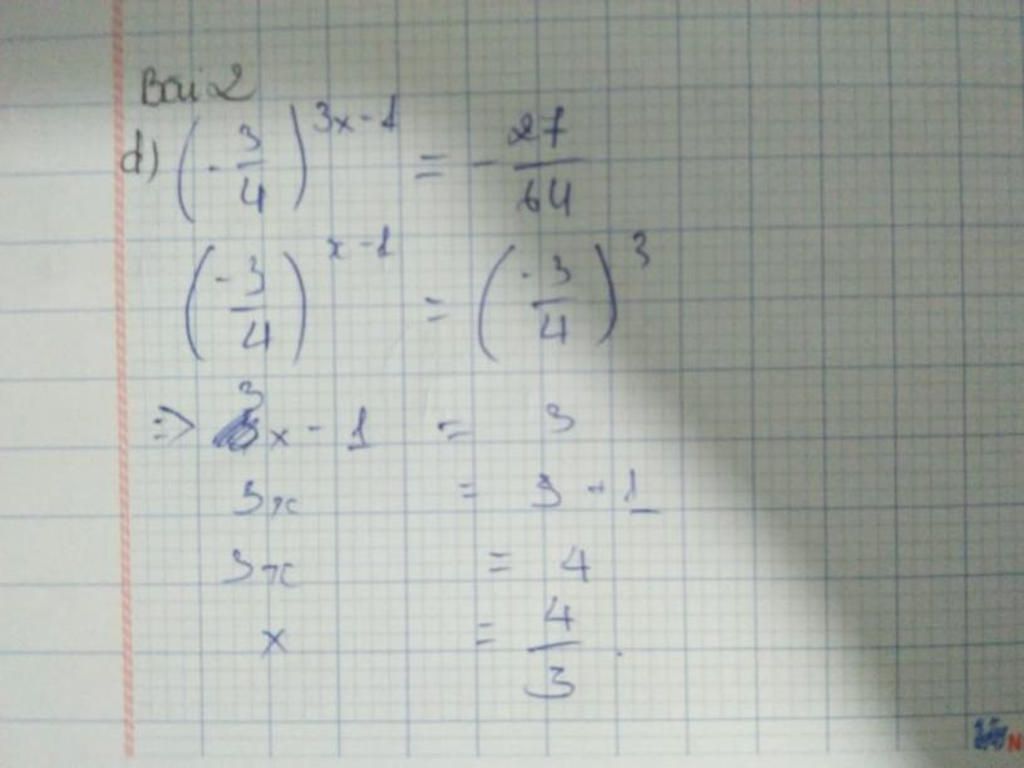 Bài 2
d) (-3/4)^(3x-1) = -27/64
(-3/4)^(x-1) = (-3/4)^3
=> 3x - 1 = 3
3x = 3 + 1
3x = 4
x = 4/3.